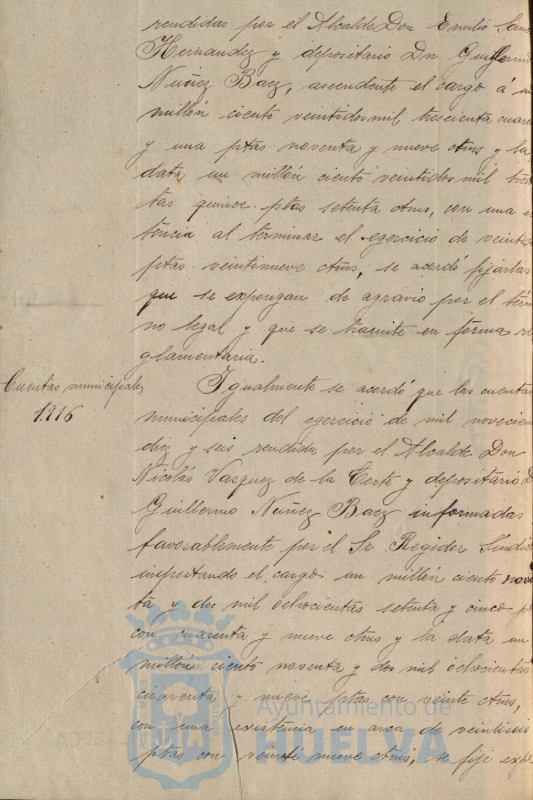 rendidas por el Alcalde Don Emilio Cano
Hernandez y depositario Dn Guillermo
Nuñez Baez, ascendente el cargo á un
millón ciento veintidosmil trescienta cuare
y una ptas noventa y nueve ctms y la
data un millón ciento veintidos mil tres
tas quince ptas setenta ctms, con una ex
tencia al terminar el egercicio de veintise
ptas veintinueve ctms, se acordó fijarlas
que se expongan de agravio por el térm
no legal y que se tramite en forma re
glamentaria.
Cuentas municipales
1916
Igualmente se acordó que las cuentas
municipales del egercicio de mil novecien
diez y seis rendida por el Alcalde Don
Nicolás Vazquez de la Corte y depositario D
Guillermo Nuñez Baez informadas
favorablemente por el Sr Regidor Síndic
importando el cargo un millón ciento nove
ta y dos mil ochocientas setenta y cinco p
con cuarenta y nueve ctms y la data un
millón ciento noventa y dos mil ochocientas
cuarenta y nueve ptas con veinte ctms,
con una existencia en arca de veintiseis
ptas con veinti nueve ctms, se fije expo
Ayuntamiento de
HUELVA